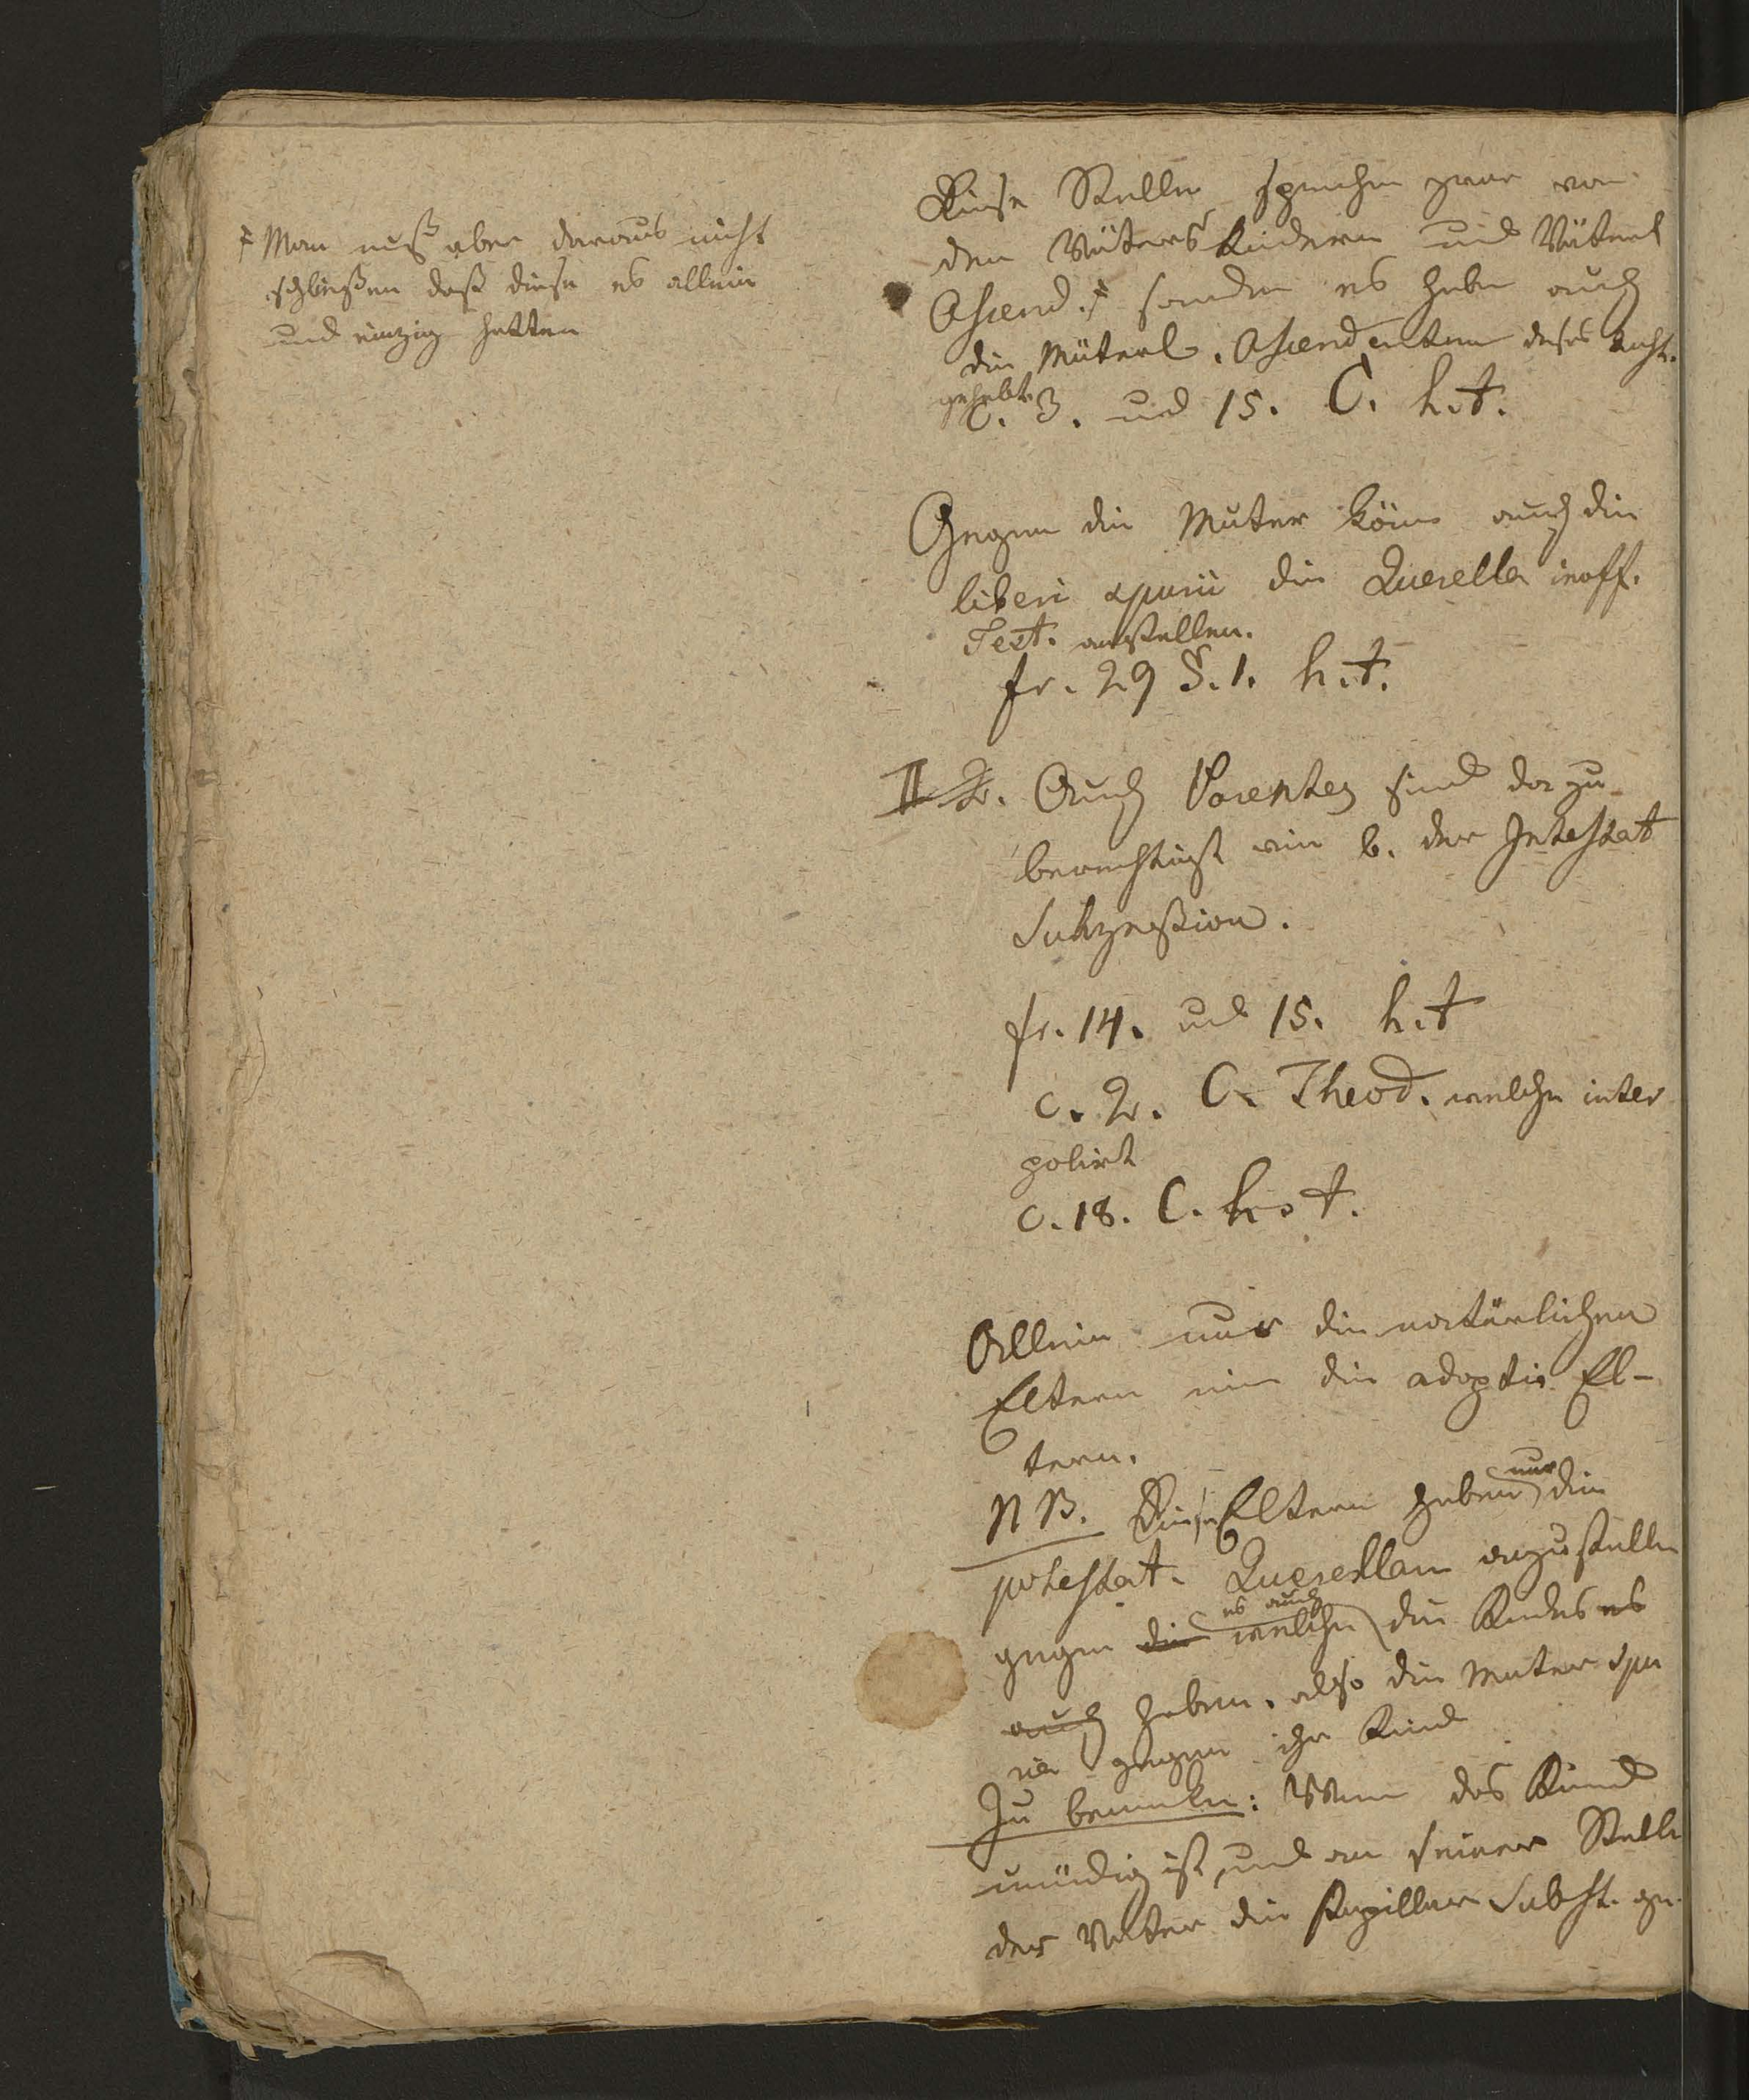 ‡ Man muß aber daraus nicht
schließen daß diese es allein
und einzig hetten
Diese Stellen sprechen zwar von
den Väters Kindern und Väterl
Ascend. ‡ sondern es habe auch
die Müterl. Ascendenten dises Recht.
gehabt.
C. 3. und 15. C. h. t.
Gegen die Muter könn auch die
liberi spurii die Querella inoff.
Test. anstellen.
fr. 29 §. 1. h. t.
II 2. Auch Parentes sind dazu
berechtigt wie b. der Intestat
Sukzeßion.
fr. 14. und 15. h. t
c. 2. C. Theod. welche inter
polirt
c. 18. C. h. t.
Allein nur die natürlichen
Eltern nie die adoptiv El-
tern.
NB. Diese Eltern haben nur die
potestat. Querellam anzustellen
gegen die welche es auch die Kindes es
auch haben. also die Muter spu
ria gegen ihr Kind
Zu bemerken: Wenn das Kind
unmündig ist, und an seiner Stelle
der Vater die Pupillar Subst. ge-